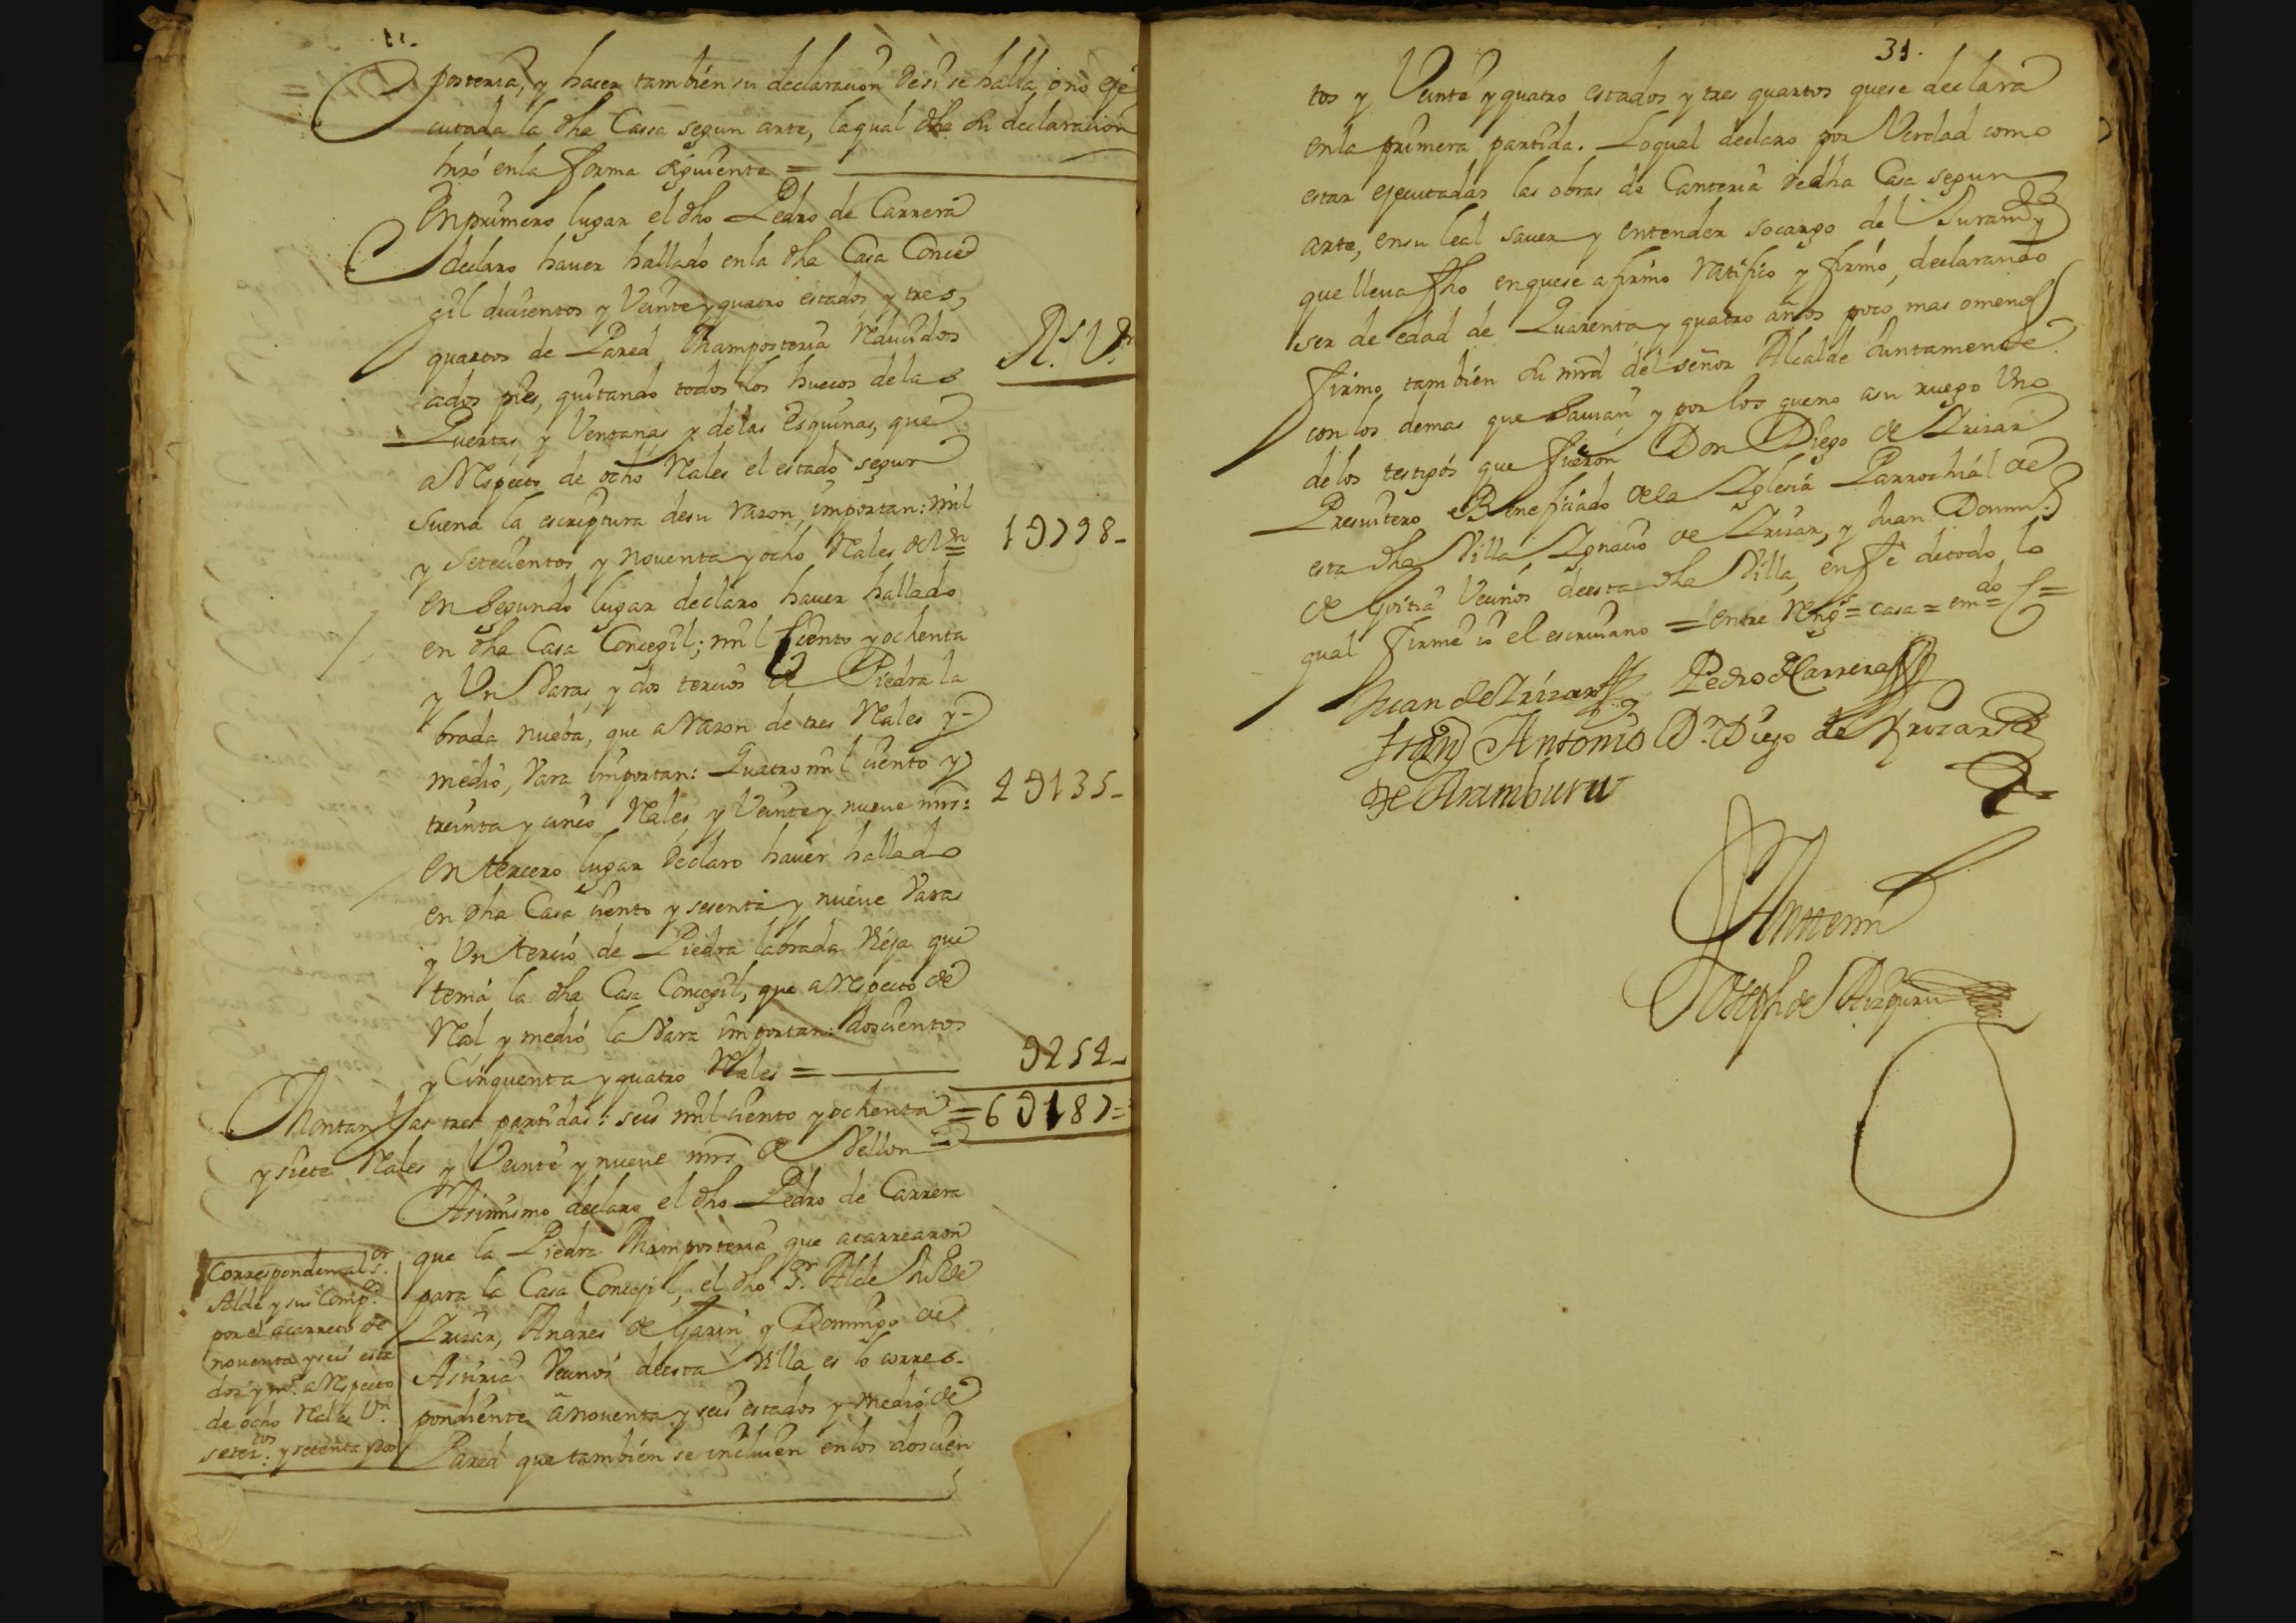 posteria, y hacer tambien su declaracion de si se halla, o no eje
cutada la dha Cassa segun arte, la qual dha su declaracion
hizo en la forma siguiente =
En primero lugar el dho Pedro de Carrera
declaro haver hallado en la dha Casa Conce
gil ducientos y Veinte y quatro estados y tres
quartos de Pared Mamposteria Reducidos
a dos pies, quitando todos los huecos de las
Puertas, y Ventanas y de las Esquinas, que
a Respecto de ocho Reales el estado segun
suena la escriptura de su razon, importan: mil
y setecientos y noventa y ocho Reales de Vn =
R.s V.n
1U798-
en Segundo lugar declaro haver hallado
en dha Casa Concegil; mil ciento y ochenta
y Un Varas, y dos tercios de Piedra la
brada nueba, que a Razon de tres Reales y
medio, Vara importan: Quatro mil ciento y
treinta y cinco Reales y Veinte y nueve mrs:
4U135-
en tercero lugar declaro haver hallado
en dha Casa ciento y sesenta y nueve Varas
y Un tercio de Piedra labrada Vieja que
tenia la dha Casa Concegil, que a Respecto de
Real y medio la Vara importan: doscientos
y Cinquenta y quatro Reales =
U254-
Montan las tres partidas: seis mil ciento y ochenta
= 6U187=
y siete Reales y Veinte y nueve mrs de Vellon =
Asimismo declaro el dho Pedro de Carrera
que la Piedra Mamposteria que acarrearon
para la Casa Concegil, el dho S.r Alde Ju.o de
Irizar, Andres de Garin y Domingo de
Asuria Vecinos de esta Villa es lo corres-
pondiente a noventa y seis estados y medio de
Pared que tambien se incluien en los doscien
Corresponden al s.or
Alde y sus Comp.os
por el acarreto de
noventa y seis esta
dos y m.o a Respecto
de ocho Reales V.n
setez.tos y setenta y dos
31.
tos y Veinte y quatro estados y tres quartos que se declara
en la primera partida. Lo qual declaro por Verdad como
estar ejecutadas las obras de Canteria de dha Casa segun
arte, en su leal saver y entender so cargo del Juram.to
que lleva fho en que se afirmo Ratifico y firmo, declarando
ser de edad de Quarenta y quatro años poco mas o menos
firmo tambien su mrd del señor Alcalde Juntamente
con los demas que Savian y por los que no a su ruego Uno
de los testigos que fueron Don Diego de Irizar
Presvitero Beneficiado de la Iglesia Parrochial de
esta dha Villa, Ignacio de Irizar, y Juan Domin.o
de Goitia Vecinos de esta dha Villa, en fe de todo lo
qual firme io el escrivano = entre Reng.s = casa = em.do f =
Juan de Irizar Pedro de Carrera
Fran.co Antonio D.n Diego de Irizar
de Aramburu
Ante mi
Joseph de Aizpuru